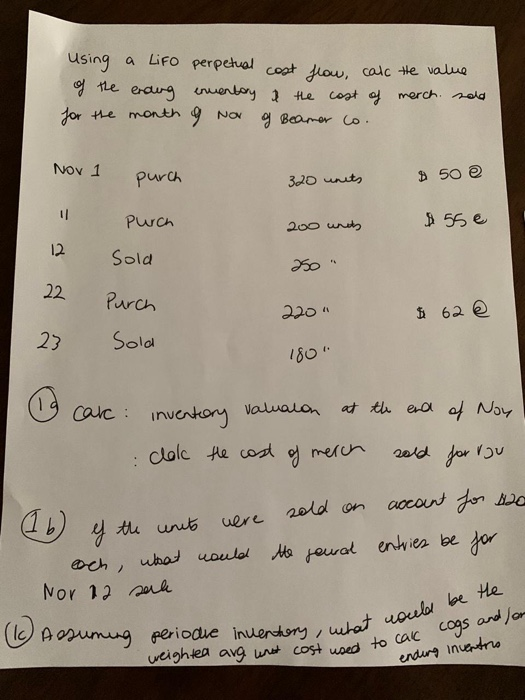 Using a LIFO perpetual cost flow, calc the value
of the ending inventory & the cost of merch. sold
for the month of Nov of Beamer Co.
Nov 1 Purch 320 units $ 50 @
11 Purch 200 units $ 55 @
12 Sold 250 "
22 Purch 220 " $ 62 @
23 Sold 180 "
1a calc : inventory valuation at the end of Nov
: calc the cost of merch sold for Nov
1b) if the units were sold on account for $120
each, what would the journal entries be for
Nov 12 sale
1c) Assuming periodic inventory, what would be the
weighted avg unit cost used to calc cogs and/or
ending inventory